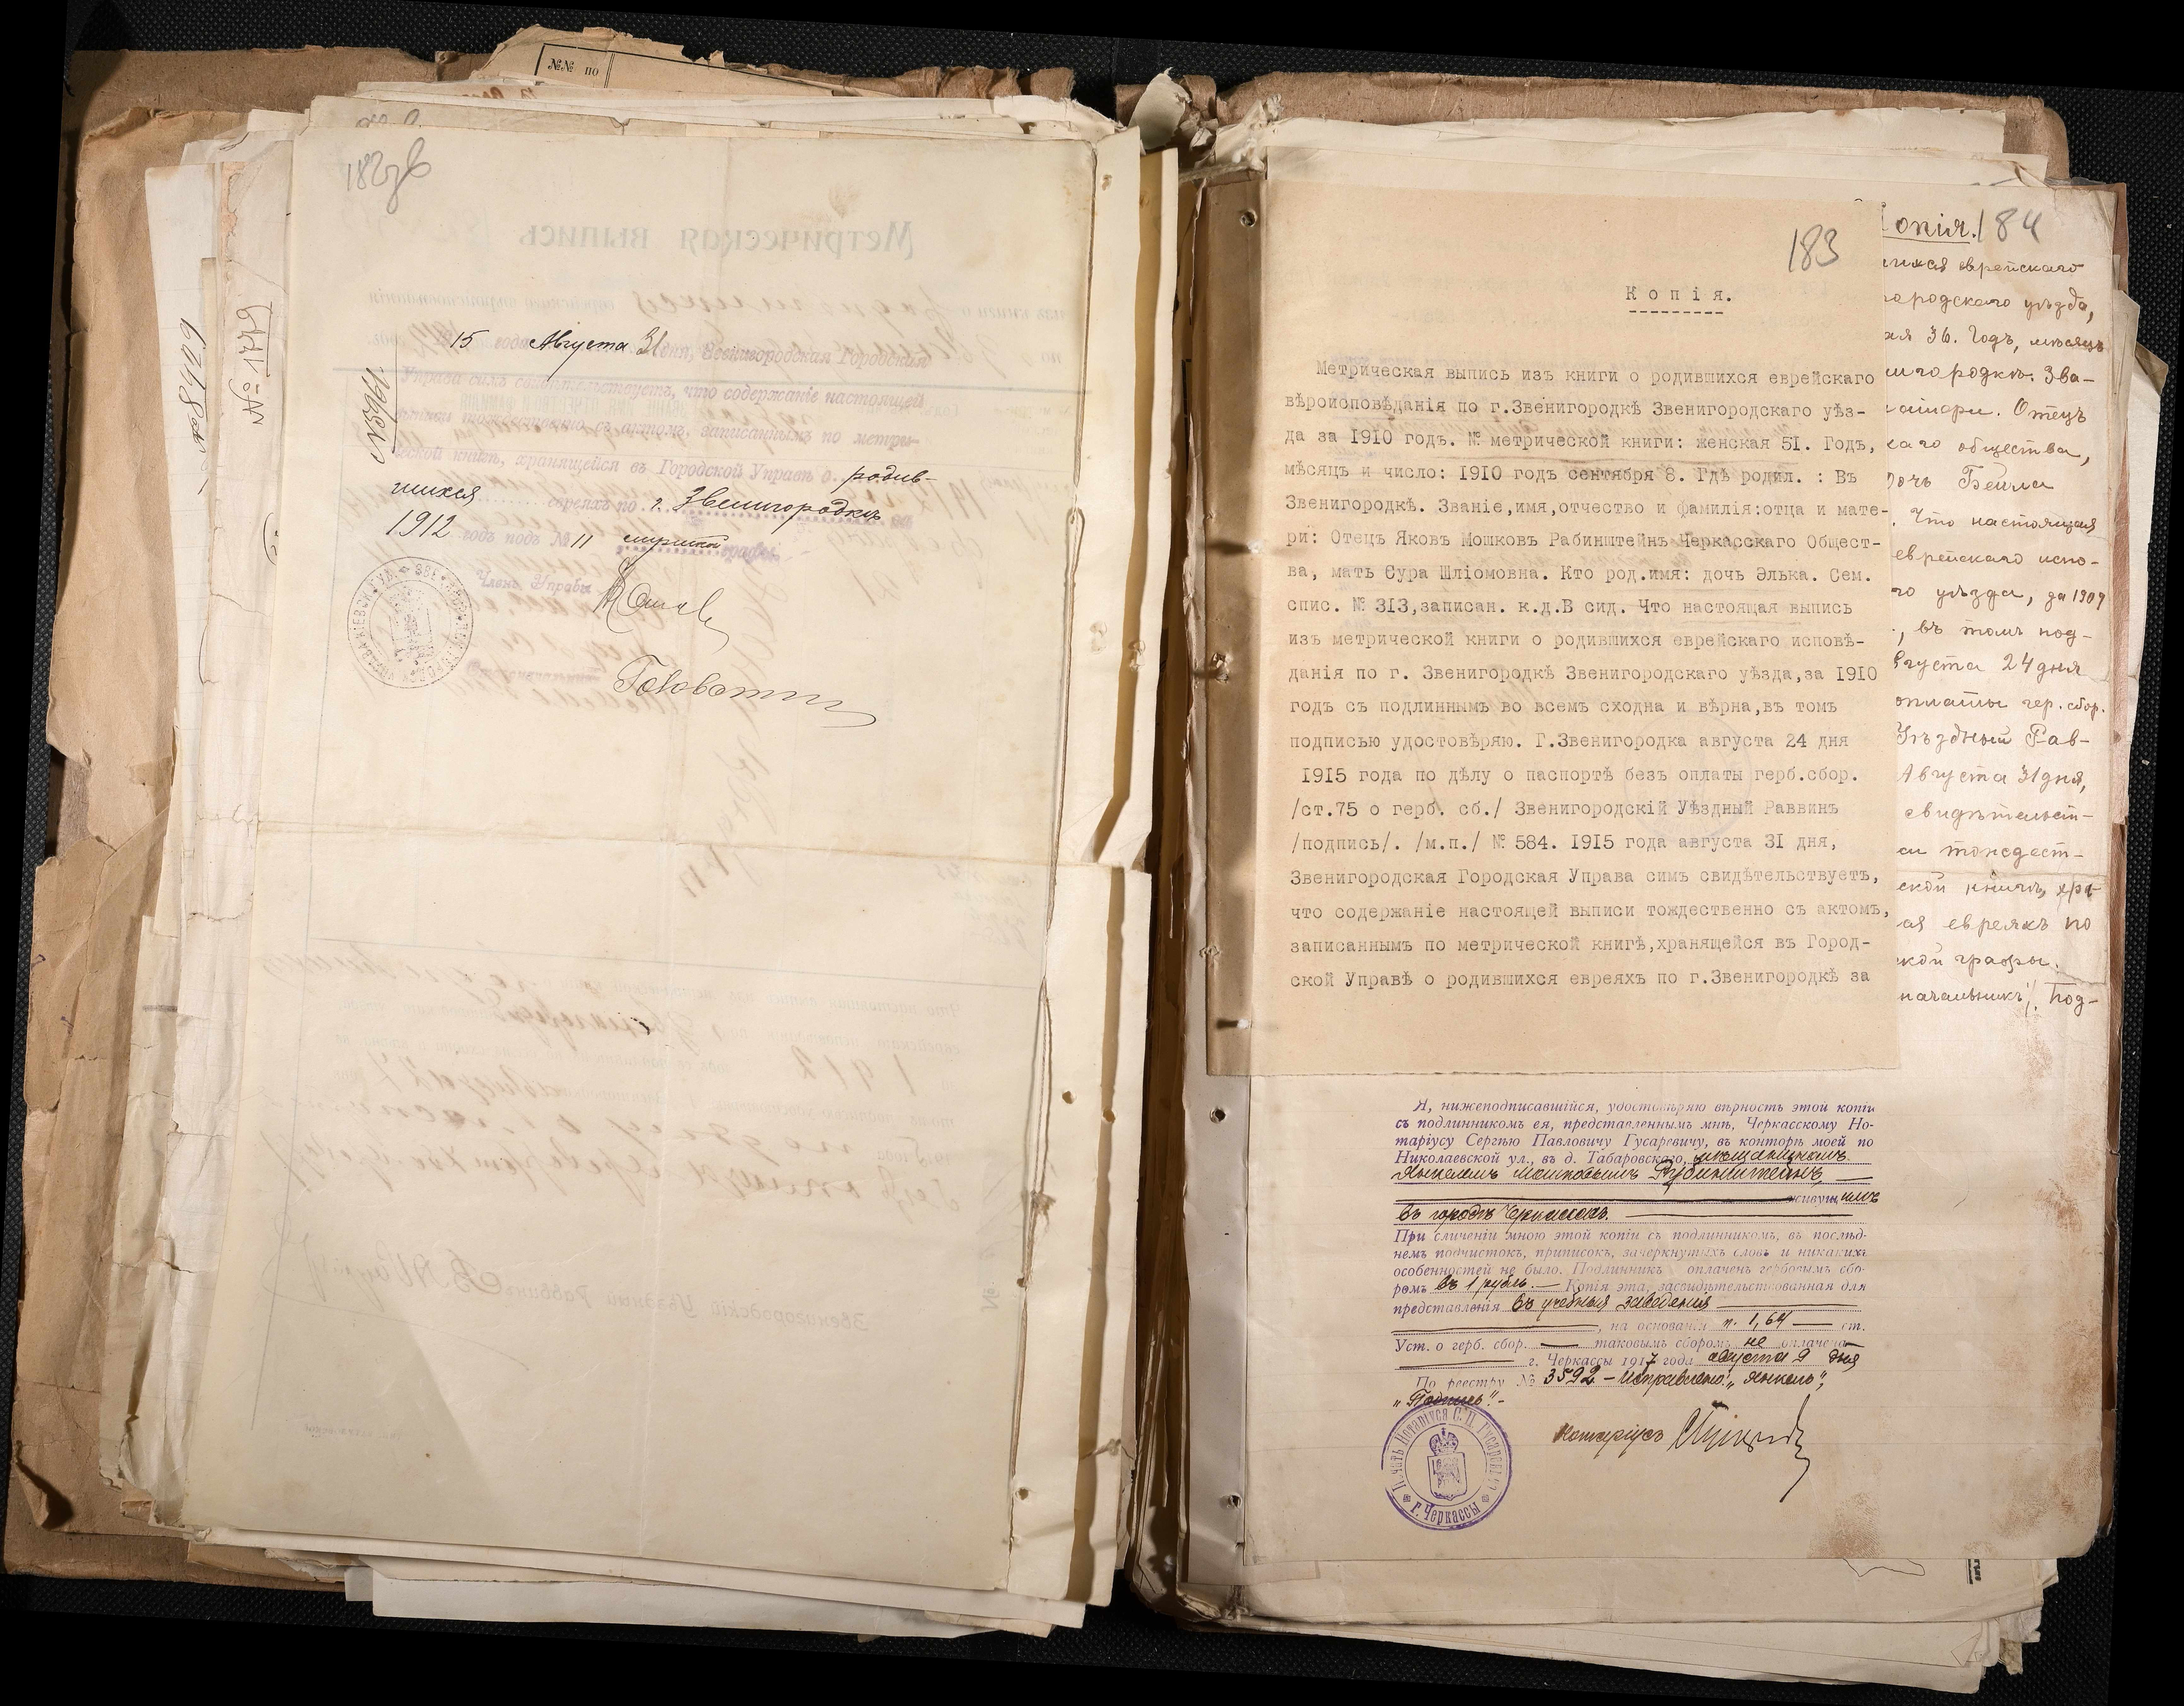 №№ по
182зв
№ 1779
15 года Августа 31 дня, Звенигородская Городская
Управа симъ свидѣтельствуетъ, что содержаніе настоящей
выписи тождественно съ актомъ, записаннымъ по метри-
ческой книгѣ, хранящейся въ Городской Управѣ о родив-
шихся евреяхъ по г. Звенигородкѣ
1912 годъ подъ № 11 мужской графы.
Членъ Управы
183
Копія.
Метрическая выпись изъ книги о родившихся еврейскаго
вѣроисповѣданія по г.Звенигородкѣ Звенигородскаго уѣз-
да за 1910 годъ. № метрической книги: женская 51. Годъ,
мѣсяцъ и число: 1910 годъ сентября 8. Гдѣ родил. : Въ
Звенигородкѣ. Званіе,имя,отчество и фамилія:отца и мате-
ри: Отецъ Яковъ Мошковъ Рабинштейнъ Черкасскаго Общест-
ва, мать Сура Шліомовна. Кто род.имя: дочь Элька. Сем.
спис. № 313,записан. к.д.В сид. Что настоящая выпись
изъ метрической книги о родившихся еврейскаго исповѣ-
данія по г. Звенигородкѣ Звенигородскаго уѣзда,за 1910
годъ съ подлиннымъ во всемъ сходна и вѣрна,въ томъ
подписью удостовѣряю. Г.Звенигородка августа 24 дня
1915 года по дѣлу о паспортѣ безъ оплаты герб.сбор.
/ст.75 о герб. сб./ Звенигородскій Уѣздный Раввинъ
/подпись/. /м.п./ № 584. 1915 года августа 31 дня,
Звенигородская Городская Управа симъ свидѣтельствуетъ,
что содержаніе настоящей выписи тождественно съ актомъ,
записаннымъ по метрической книгѣ,хранящейся въ Город-
ской Управѣ о родившихся евреяхъ по г.Звенигородкѣ за
Я, нижеподписавшійся, удостовѣряю вѣрность этой копіи
съ подлинникомъ ея, представленнымъ мнѣ, Черкасскому Но-
таріусу Сергѣю Павловичу Гусаревичу, въ конторѣ моей по
Николаевской ул., въ д. Табаровскаго, мѣщаниномъ
Янкелемъ Мошковымъ Рубинштейнъ,
живущимъ
въ городѣ Черкассахъ.
При сличеніи мною этой копіи съ подлинникомъ, въ послѣд-
немъ подчистокъ, приписокъ, зачеркнутыхъ словъ и никакихъ
особенностей не было. Подлинникъ оплаченъ гербовымъ сбо-
ромъ въ 1 рубль. — Копія эта, засвидѣтельствованная для
представленія въ учебныя заведенія
, на основаніи п. 1, 64 — ст.
Уст. о герб. сбор. — таковымъ сборомъ не оплачена
г. Черкассы 1917 года августа 9 дня
По реестру № 3592 – Исправлено: „Янкель“,
„Подпись“.-
Нотаріусъ
Печать Нотаріуса С. П. Гусаревича
г. Черкассы
Копія. 184
еврейскаго
городскаго уѣзда,
36. Годъ, мѣсяцъ
Зва-
Отецъ
общества,
дочь Бейла
Что настоящая
еврейскаго испо-
уѣзда, за 1909
, въ томъ под-
августа 24 дня
оплаты гер. сбор.
Уѣздный Рав-
Августа 31 дня,
свидѣтельст-
тождест-
ской книгѣ, хра-
евреяхъ по
графы.
начальникъ/. Под-